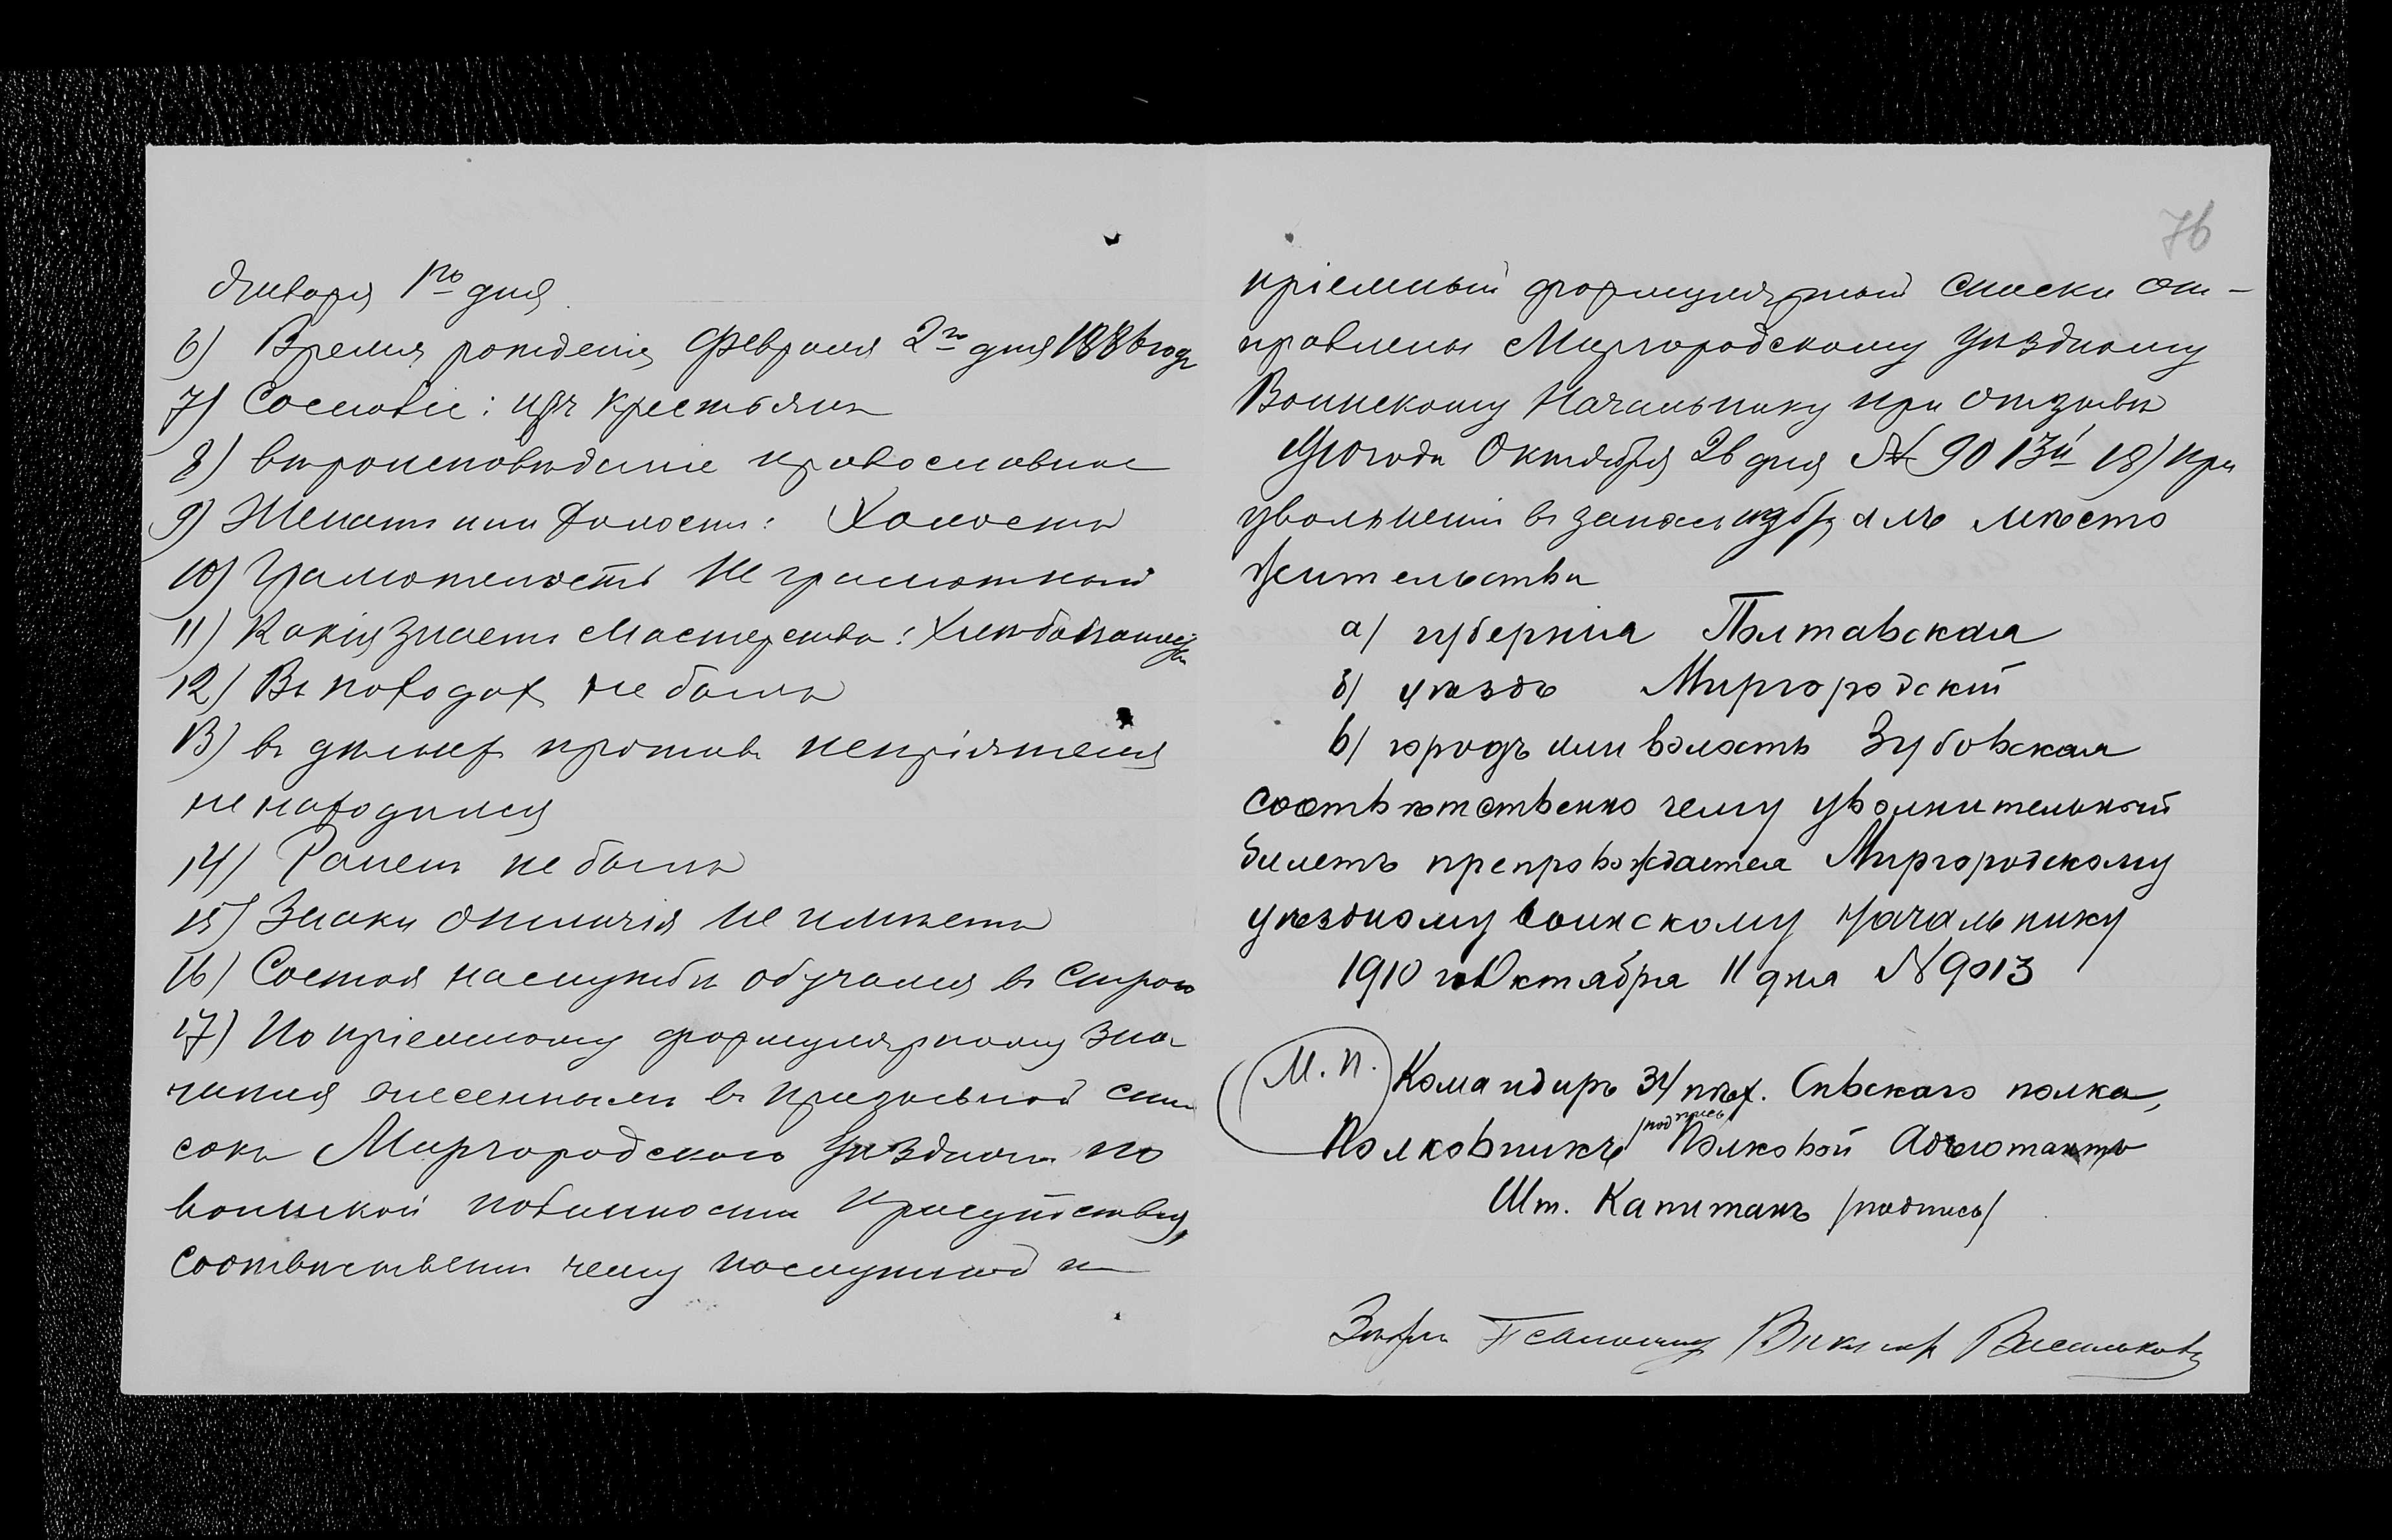 Января 1го дня
6) Время рожденія Февраля 2го дня 1886 года
7) Сословіе: изъ крестьянъ
8) вѣроисповѣданіе православное
9) Женатъ или холостъ: Холостъ
10) Грамотность Не грамотный
11) Какія знаетъ мастерства: Хлѣбопашецъ
12) Въ походахъ не былъ
13) въ дѣлахъ противъ непріятеля
не находился
14) Раненъ не былъ
15) Знаки отличія не имѣетъ
16) Состоя на службѣ обучался въ строю
17) По пріемному формулярному зна-
чился внесеннымъ въ призывной спи
сокъ Миргородскаго Уѣзднаго по
воинской повинности Присутствія,
Соотвѣтственно чему послужной и
76
пріемный формулярный списки от-
правлены Миргородскому Уѣздному
Воинскому Начальнику при отзывѣ
1910 года Октября 26 дня № 9013й 18) При
увольненіи въ запасъ избралъ мѣсто
жительства
а) губернія Полтавская
б) уѣздъ Миргородскій
в) городъ или волость Зубовская
соотвѣтственно чему увольнительный
билетъ препровождается Миргородскому
уѣздному воинскому начальнику
1910 г. Октября 11 дня № 9013
М.П. Командиръ 34 пѣх. Сѣвскаго полка,
Полковникъ /подпись/ Полковой Адъютантъ
Шт. Капитанъ /подпись/
Виктор Васильковъ